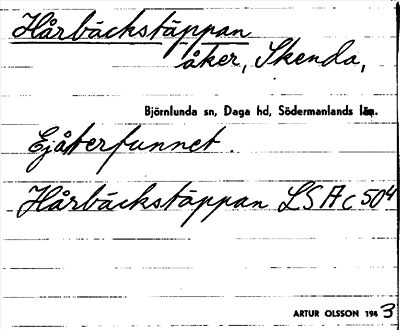 Hårbäckstäppan
åker, Skenda,
Björnlunda sn, Daga hd, Södermanlands län.
Ej återfunnet.
Hårbäckstäppan LSA c 504
ARTUR OLSSON 1943